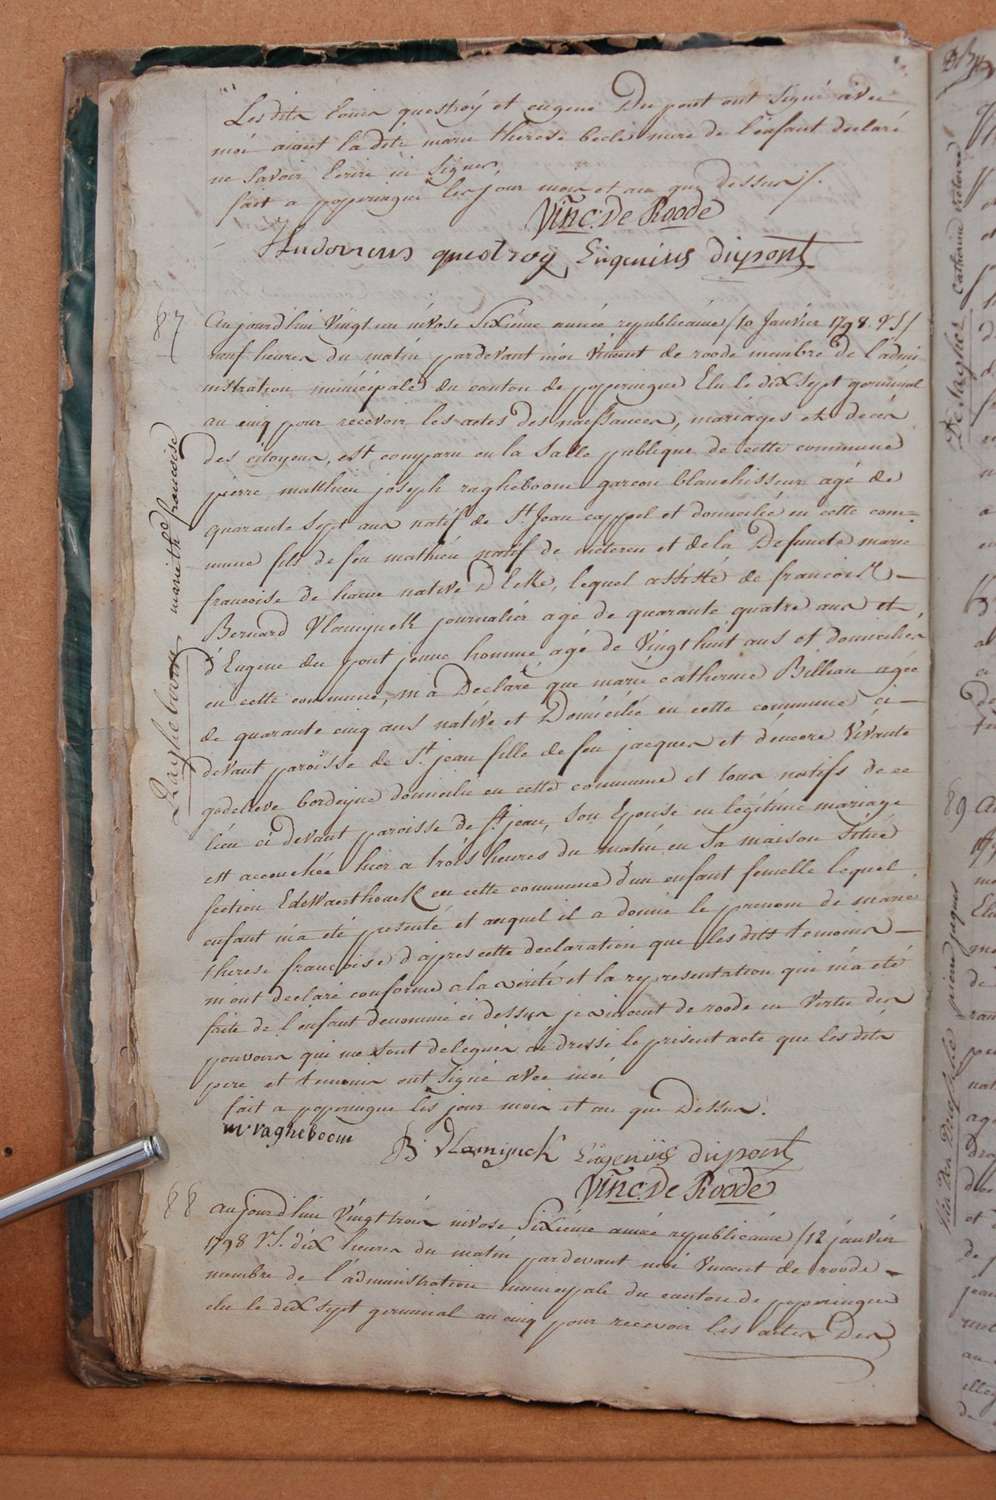 Les dits Louis questroÿ et eugene Du pont ont signé avec
moi aiant la dite marie therese becle mere de l'enfant declaré
ne savoir Ecrire ni signer,
fait a poperingue les jour mois et an que dessus /.
Vinc: De Roode
Ludovicus questroy Eugenius dupont
87
Ragheboom marie the francoise
Aujourd'hui Vingt un nivose Sixieme année republicaine /10 Janvier 1798. VS/
neuf heures du matin pardevant moi Vincent de roode membre de l'admi
nistration municipale du canton de poperingue Elu le dix sept germinal
an cinq pour recevoir les actes des naissances, mariages et decés
des citoyens, est comparu en la Salle publique de cette commune
pierre matthieu joseph ragheboom garcon blanchisseur agé de
quarante sept ans natif de St. Jean cappel et domicilié en cette com=
mune fils de feu mathieu natif de meteren et de la Defuncte marie
francoise de haene native D'Ecke, lequel assisté de francois
Bernard Vlamijnck journalier agé de quarante quatre ans et
d'Eugene du pont jeune homme agé de Vingthuit ans et domiciliés
en cette commune, m'a Declaré que marie catherine Billiau agée
de quarante cinq ans native et Domiciliée en cette commune ci-
devant paroisse de St. jean fille de feu jacques et d'encore Vivante
godelieve bordeijne domiciliée en cette commune et tous natifs de ce
lieu ci devant paroisse de St. jean, son Epouse en legitime mariage
est accouchée hier a trois heures du matin en Sa maison Située
section Edewaerthoeck en cette commune d'un enfant femelle lequel
enfant m'a été presenté et auquel il a donné le prenom de marie
therese francoise d'apres cette declaration que les dits temoins
m'ont declaré conforme a la verité et la representation qui m'a été
faite de l'enfant denommé ci dessus je vincent de roode en Vertu des
pouvoirs qui me sont delegués ai dressé le present acte que les dits
pere et temoins ont signé avec moi
fait a poperingue les jour mois et an que Dessus.
m ragheboom
B: Vlamijnck Eugenius dupont
Vinc: De Roode
88
aujourd'hui Vingt trois nivose Sixieme année republicaine /12 janvier
1798 VS. dix heures du matin pardevant moi Vincent de roode
membre de l'administration municipale du canton de poperingue
elu le dix sept germinal an cinq pour recevoir les actes Des